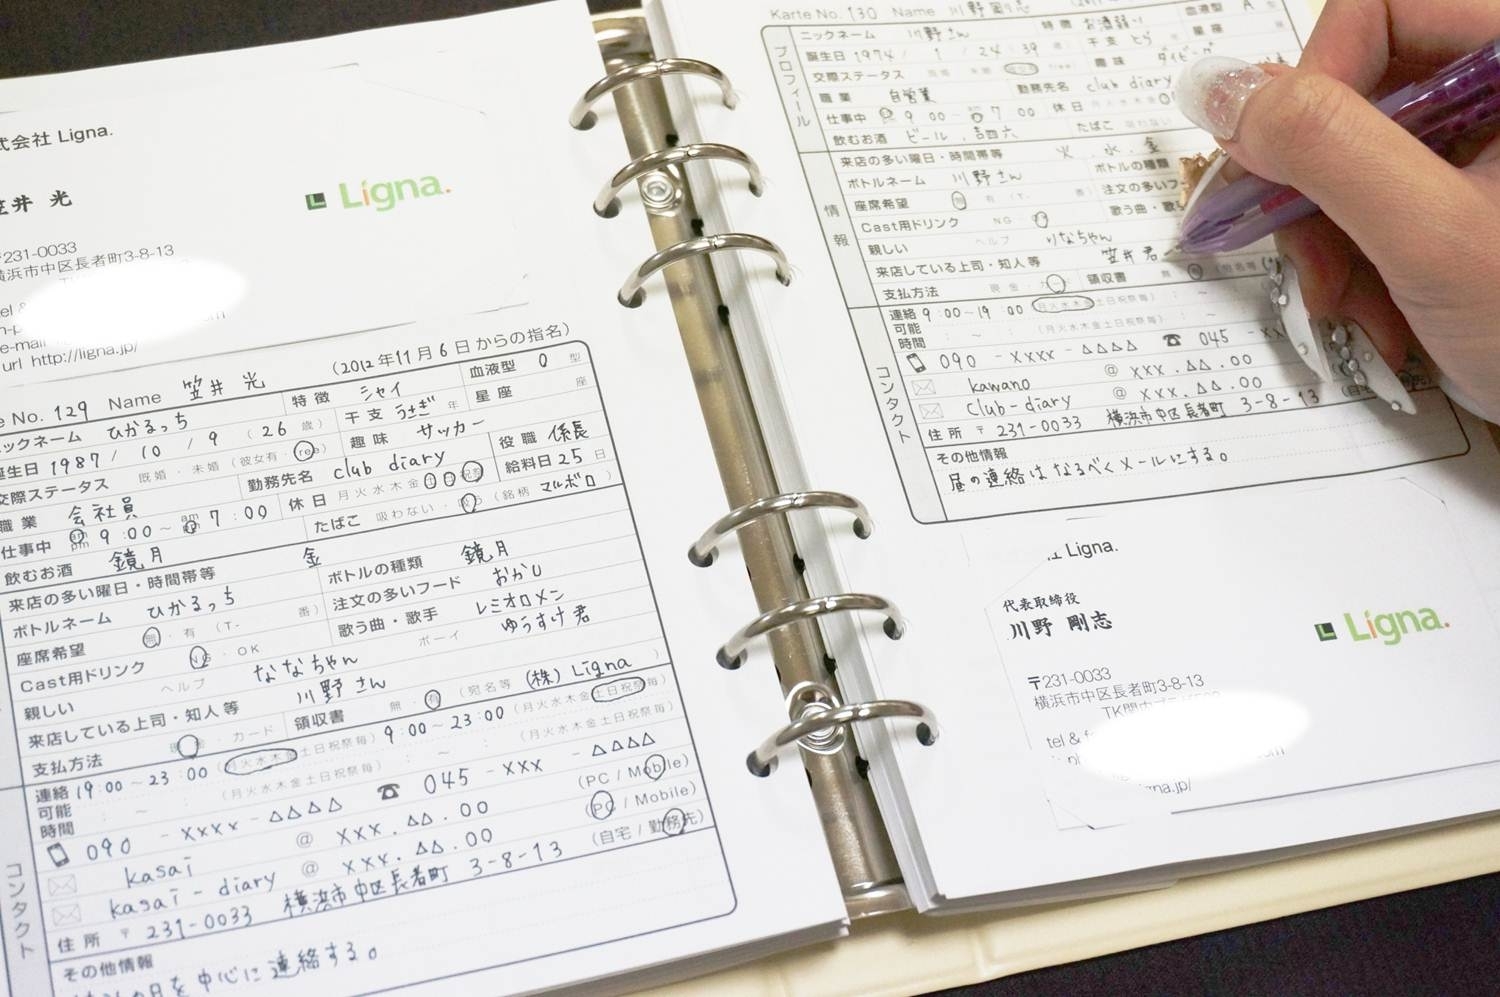 式会社 Ligna.
笠井 光
Ligna.
〒231-0033
横浜市中区長者町3-8-13
tel &
e-mail
url http://ligna.jp/
(2012年11月6日からの指名)
No. 129 Name 笠井 光 特徴 シャイ 血液型 O 型
ックネーム ひかるっち 干支 うさぎ 年 星座 座
誕生日 1987 / 10 / 9 (26歳) 趣味 サッカー
交際ステータス 既婚・未婚 (彼女有・free) 勤務先名 club diary 役職 係長
職業 会社員 休日 月火水木金土日祝祭 給料日 25日
仕事中 am pm 9:00~ am pm 7:00 たばこ 吸わない・吸う (銘柄 マルボロ)
飲むお酒 鏡月
来店の多い曜日・時間帯等 金 ボトルの種類 鏡月
ボトルネーム ひかるっち 注文の多いフード おかし
座席希望 無・有 (T- 番) 歌う曲・歌手 レミオロメン
Cast用ドリンク NG・OK ボーイ ゆうすけ君
親しい ヘルプ ななちゃん
来店している上司・知人等 川野さん
支払方法 現金・カード 領収書 無・有 (宛名等 (株) Ligna )
連絡可能時間 19:00~23:00 (月火水木金土日祝祭毎) 9:00~23:00 (月火水木金土日祝祭毎)
: ~ : (月火水木金土日祝祭毎) : ~ : (月火水木金土日祝祭毎)
090 - xxxx - △△△△ ☎ 045 - xxx - △△△△
kasai @ xxx.△△.00 (PC / Mobile)
kasai - diary @ xxx.△△.00 (PC / Mobile)
住所 〒 231-0033 横浜市中区長者町 3-8-13 (自宅 / 勤務先)
その他情報
日を中心に連絡する。
コンタクト
Karte No. 130 Name 川野剛志
プロフィール
ニックネーム 川野さん 特徴 お酒弱い 血液型 A 型
誕生日 1974 / 1 / 24 (39歳) 干支 とら 年 星座
交際ステータス 既婚 未婚 趣味 ダイビング
職業 自営業 勤務先名 club diary
仕事中 9:00~ 7:00 休日 月火水木金
飲むお酒 ビール、吉四六 たばこ 吸わない
情報
来店の多い曜日・時間帯等 火、水、金
ボトルネーム 川野さん ボトルの種類
座席希望 無 有 (T- 番) 注文の多いフー
Cast用ドリンク NG 歌う曲・歌
親しい ヘルプ りなちゃん
来店している上司・知人等 笠井君
支払方法 現金・カード 領収書 無 (宛名等
コンタクト
連絡可能時間 9:00~19:00 (月火水木金土日祝祭毎) : ~ :
: ~ : (月火水木金土日祝祭毎)
090 - xxxx - △△△△ ☎ 045 - xx
kawano @ xxx.△△.00
club-diary @ xxx.△△.00
住所 〒 231-0033 横浜市中区長者町 3-8-13 (自宅
その他情報
昼の連絡はなるべくメールにする。
Ligna.
代表取締役
川野 剛志
Ligna.
〒231-0033
横浜市中区長者町3-8-13
tel &
gna.jp/